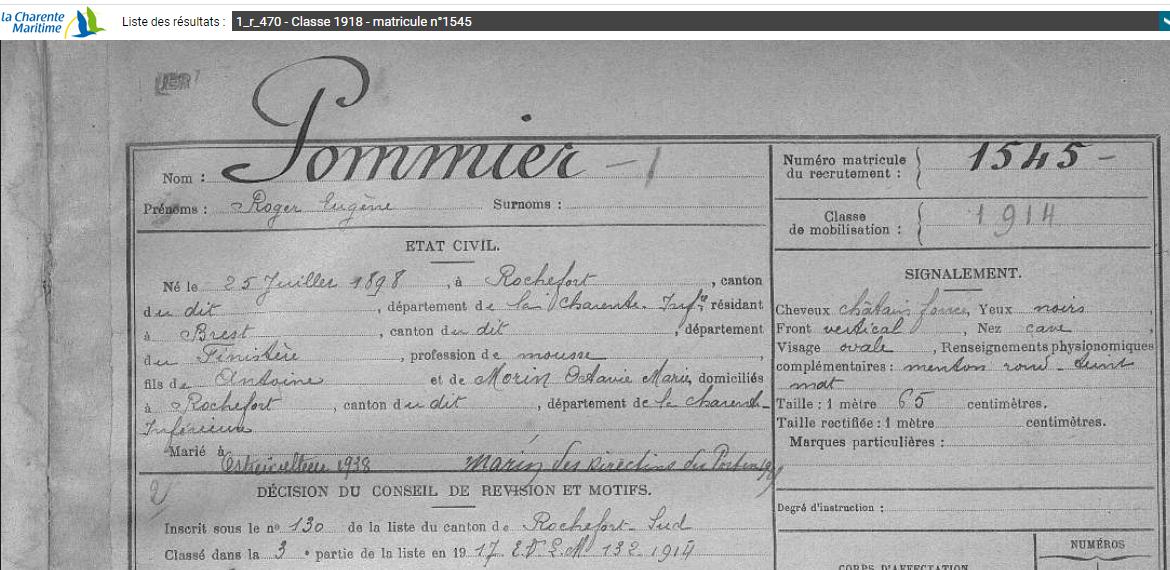 la Charente
Maritime
Liste des résultats : 1_r_470 - Classe 1918 - matricule n°1545
Nom : Pommier - 1
Prénoms : Roger Eugène Surnoms :
Numéro matricule du recrutement : 1545 -
Classe de mobilisation : 1914
ETAT CIVIL.
Né le 25 Juillet 1898, à Rochefort, canton
du dit, département de la Charente-Infre, résidant
à Brest, canton du dit, département
du Finistère, profession de mousse,
fils de Antoine et de Morin Octavie Marie, domiciliés
à Rochefort, canton du dit, département de la Charente-
Inférieure
Marié à
1938 Marin des Directions du Port
SIGNALEMENT.
Cheveux châtain foncé, Yeux noirs,
Front vertical, Nez cave,
Visage ovale, Renseignements physionomiques
complémentaires : menton rond - teint
mat
Taille : 1 mètre 65 centimètres.
Taille rectifiée : 1 mètre centimètres.
Marques particulières :
2)
DÉCISION DU CONSEIL DE REVISION ET MOTIFS.
Inscrit sous le no 130 de la liste du canton de Rochefort-Sud
Classé dans la 3e partie de la liste en 1917. 132-1914
Degré d'instruction :
CORPS D'AFFECTATION
NUMÉROS